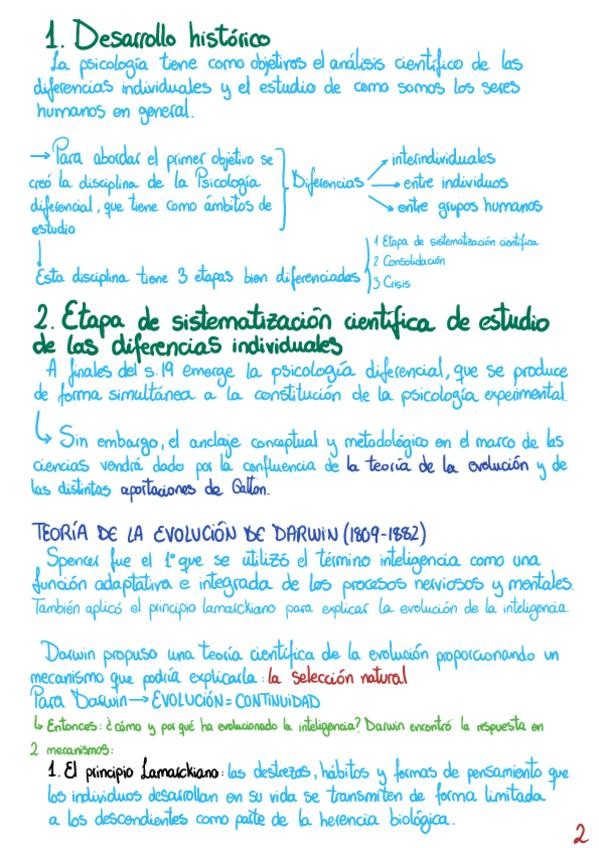 1. Desarrollo histórico
La psicología tiene como objetivos el análisis científico de las
diferencias individuales y el estudio de como somos los seres
humanos en general.
→ Para abordar el primer objetivo se
creó la disciplina de la Psicología
diferencial, que tiene como ámbitos de
estudio
Diferencias
interindividuales
entre individuos
entre grupos humanos
Esta disciplina tiene 3 etapas bien diferenciadas
1 Etapa de sistematización científica
2 Consolidación
3 Crisis
2. Etapa de sistematización científica de estudio
de las diferencias individuales
A finales del s.19 emerge la psicología diferencial, que se produce
de forma simultánea a la constitución de la psicología experimental.
↳ Sin embargo, el anclaje conceptual y metodológico en el marco de las
ciencias vendrá dado por la confluencia de la teoría de la evolución y de
las distintas aportaciones de Galton.
TEORÍA DE LA EVOLUCIÓN DE DARWIN (1809-1882)
Spencer fue el 1º que se utilizó el término inteligencia como una
función adaptativa e integrada de los procesos nerviosos y mentales.
También aplicó el principio lamarckiano para explicar la evolución de la inteligencia.
Darwin propuso una teoría científica de la evolución proporcionando un
mecanismo que podría explicarla: la selección natural
Para Darwin → EVOLUCIÓN = CONTINUIDAD
↳ Entonces: ¿cómo y por qué ha evolucionado la inteligencia? Darwin encontró la respuesta en
2 mecanismos:
1. El principio Lamarckiano: las destrezas, hábitos y formas de pensamiento que
los individuos desarrollan en su vida se transmiten de forma limitada
a los descendientes como parte de la herencia biológica.
2